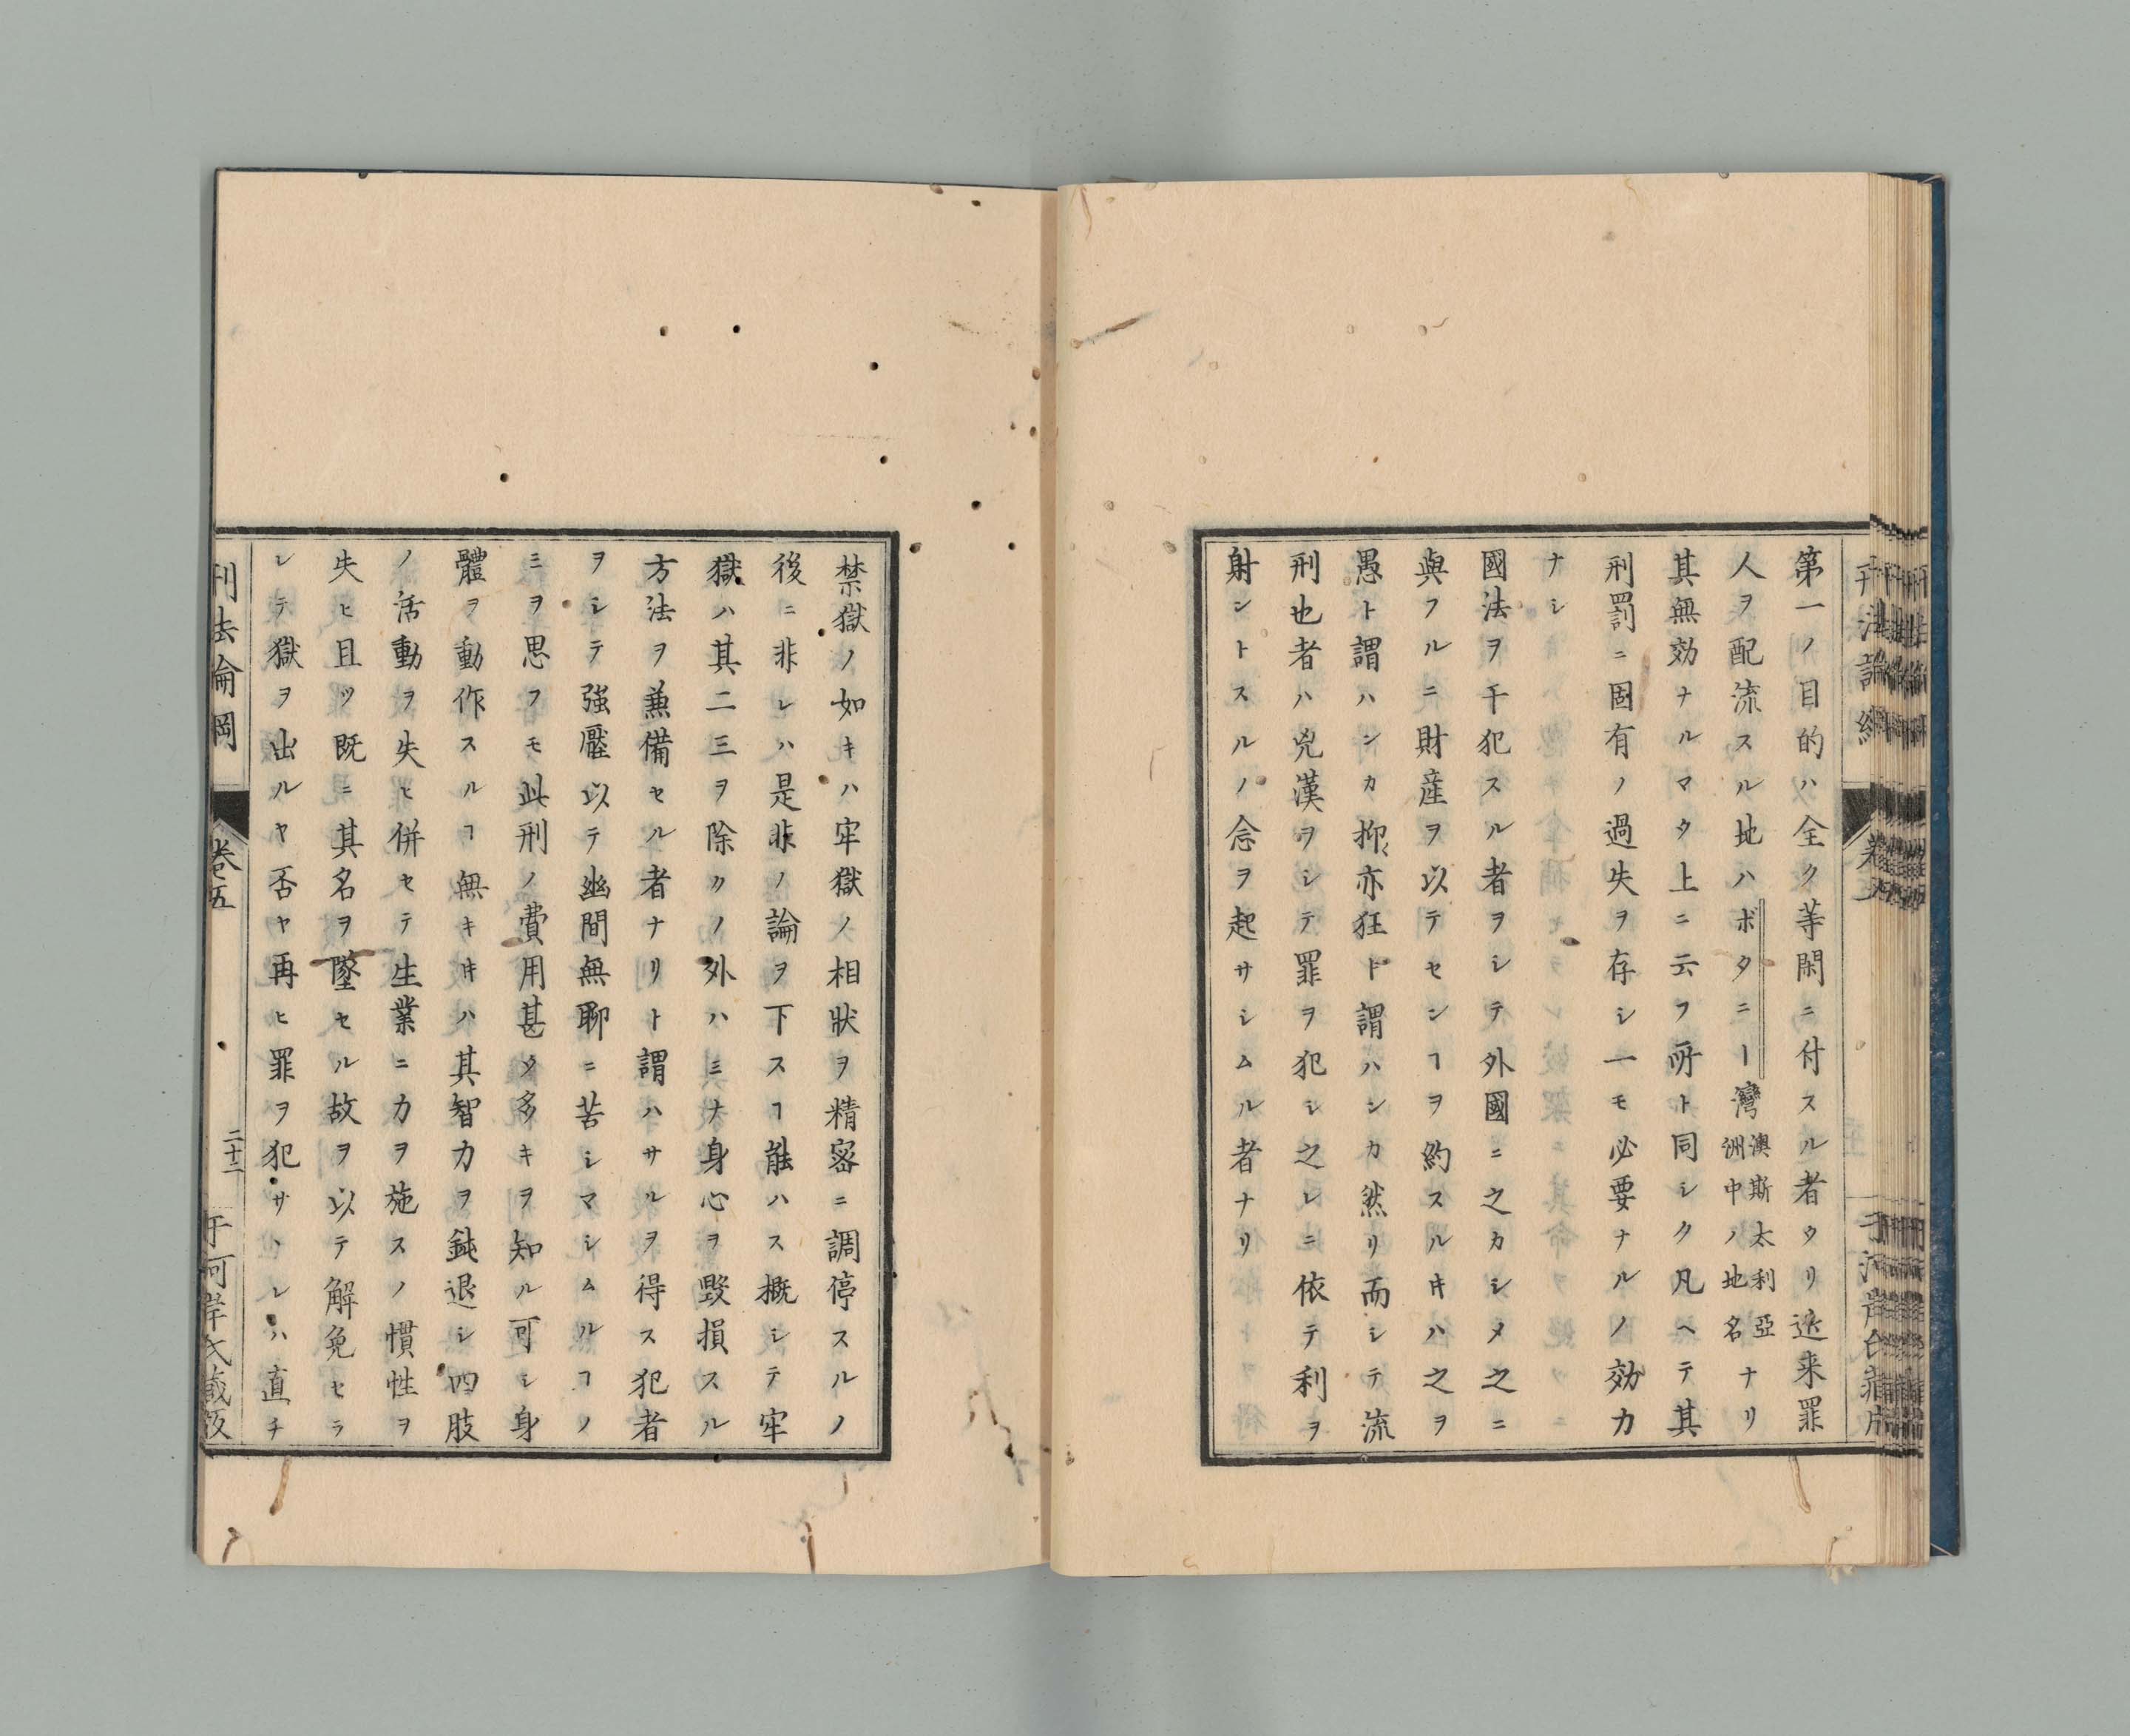 第一ノ目的ハ全ク等閑ニ付スル者タリ近来罪
人ヲ配流スル地ハボタニー灣澳斯太利亞洲中ノ地名ナリ
其無効ナルマタ上ニ云フ所ト同シク凡ヘテ其
刑罰ニ固有ノ過失ヲ存シ一モ必要ナルノ効力
ナシ
國法ヲ干犯スル者ヲシテ外國ニ之カシメ之ニ
與フルニ財産ヲ以テセンヿヲ約スルキハ之ヲ
愚ト謂ハンカ抑〻亦狂ト謂ハンカ然リ而シテ流
刑也者ハ兇漢ヲシテ罪ヲ犯シ之レニ依テ利ヲ
射ントスルノ念ヲ起サシムル者ナリ
禁獄ノ如キハ牢獄ノ相狀ヲ精密ニ調停スルノ
後ニ非レハ是非ノ論ヲ下スヿ能ハス概シテ牢
獄ハ其二三ヲ除クノ外ハミナ身心ヲ毀損スル
方法ヲ兼備セル者ナリト謂ハサルヲ得ス犯者
ヲシテ強壓以テ幽間無聊ニ苦シマシムルヿノ
ミヲ思フモ此刑ノ費用甚タ多キヲ知ル可シ身
體ヲ動作スルヿ無キキハ其智力ヲ鈍退シ四肢
ノ活動ヲ失ヒ併セテ生業ニカヲ施スノ慣性ヲ
失ヒ且ツ既ニ其名ヲ墜セル故ヲ以テ解免セラ
レテ獄ヲ出ルヤ否ヤ再ヒ罪ヲ犯サヽレハ直チ
刑法論綱
卷五
二十二